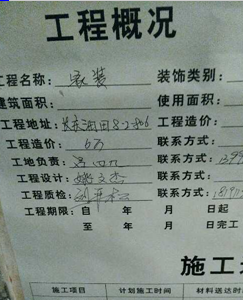 工程概况
工程名称: 家装 装饰类别:
建筑面积: 使用面积:
工程地址: 8-2-806 工程造价:
工程造价: 6万 联系方式:
工地负责: 联系方式: 1399
工程设计: 姚文杰 联系方式:
工程质检: 联系方式: 189
工程期限: 自 年 月 日起
至 年 月 日完工
施工
施工项目 计划施工时间 材料送达时